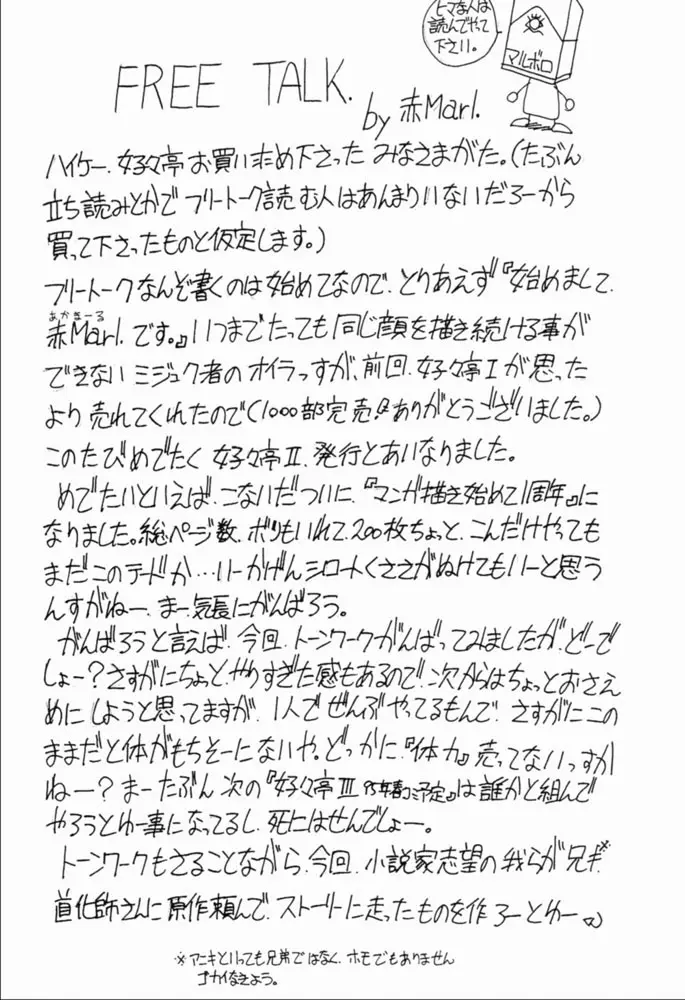 ヒマな人は
読んでやって
下さい。
マルボロ
FREE TALK.
by 赤Marl.
ハイケー、好々亭お買い求め下さったみなさまがた。(たぶん
立ち読みとかでフリートーク読む人はあんまりいないだろーから
買って下さったものと仮定します。)
フリートークなんぞ書くのは始めてなので、とりあえず『始めまして、
あかまーる
赤Marl.です。』いつまでたっても同じ顔を描き続ける事が
できないミジュク者のオイラっすが、前回、好々亭Iが思った
より売れてくれたので(1000部完売!!ありがとうございました。)
このたびめでたく好々亭II、発行とあいなりました。
めでたいといえば、こないだついに、『マンガ描き始めて1周年』に
なりました。総ページ数、ボツもいれて、200枚ちょっと、こんだけやっても
まだこのテードか…いーかげんシロートくささがぬけてもいーと思う
んすがねー、まー気長にがんばろう。
がんばろうと言えば、今回、トーンワークがんばってみましたが、どーで
しょー?さすがにちょっとやりすぎた感もあるので、次からはちょっとおさえ
めにしようと思ってますが、1人でぜんぶやってるもんで、さすがにこの
ままだと体がもちそーにないや。どっかに、『体力』売ってないっすか
ねー?まーたぶん次の『好々亭III 95年春予定』は誰かと組んで
やろうとゆー事になってるし、死にはせんでしょー。
トーンワークもさることながら、今回、小説家志望の我らが兄キ※
道化師さんに原作頼んで、ストーリーに走ったものを作ろーとゆー
※アニキといっても兄弟ではなく、ホモでもありません
ゴカイなきよう。